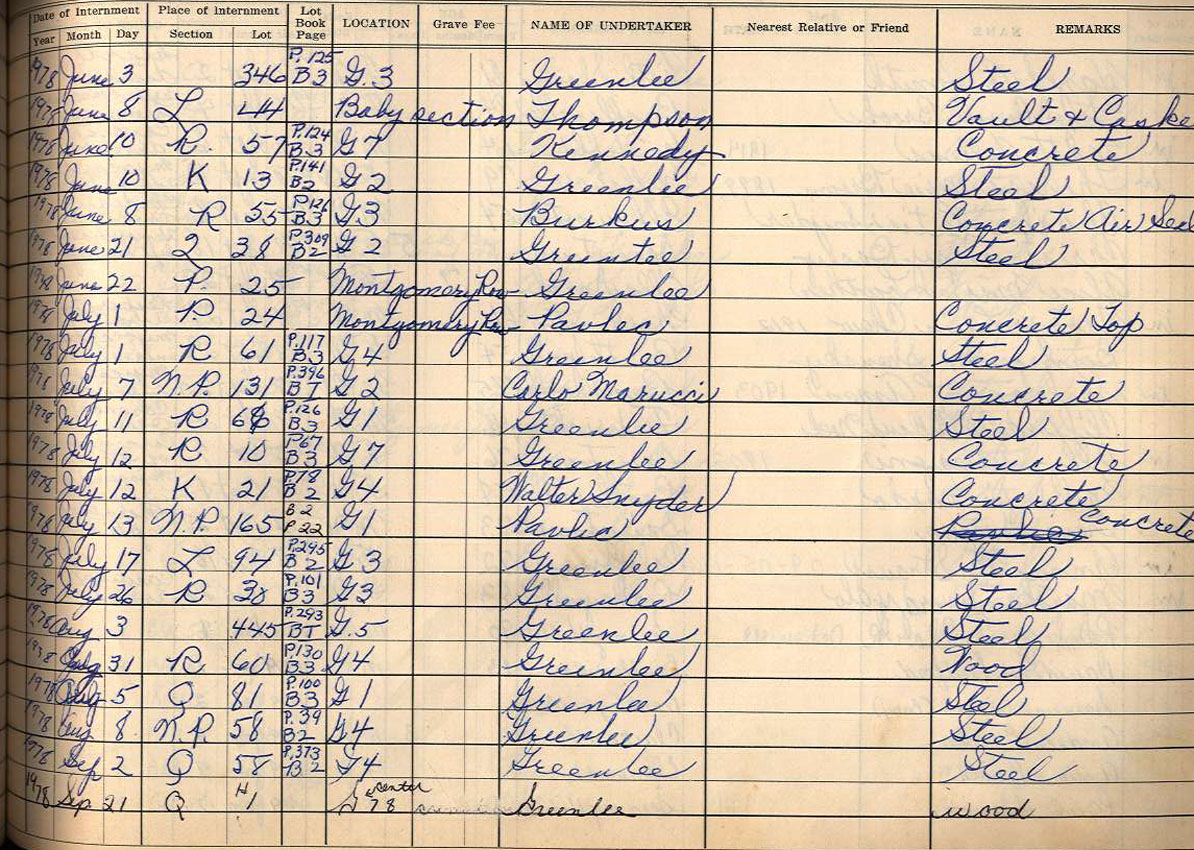 Date of Internment Place of Internment Lot Book Page LOCATION Grave Fee NAME OF UNDERTAKER Nearest Relative or Friend REMARKS
Year Month Day Section Lot
1978 June 3 346 P. 125 B3 G.3 Greenlee Steel
1978 June 8 L 44 Baby section Thompson Vault & Caske
1978 June 10 R 57 P.124 B.3 G7 Kennedy Concrete
1978 June 10 K 13 P.141 B2 G2 Greenlee Steel
1978 June 8 R 55 P126 B3 G3 Burkus Concrete Air Seal
1978 June 21 2 38 P.309 B2 G2 Greenlee Steel
1978 June 22 P. 25 Montgomery Row Greenlee
1978 July 1 P. 24 Montgomery Row Pavlic Concrete Top
1978 July 1 R 61 P.117 B.3 G4 Greenlee Steel
1978 July 7 N.P. 131 P.396 B1 G2 Carlo Marucci Concrete
1978 July 11 R 68 P.126 B.3 G1 Greenlee Steel
1978 July 12 R. 10 P67 B3 G7 Greenlee Concrete
1978 July 12 K 21 P.78 B2 G4 Walter Snyder Concrete
1978 July 13 N.P. 165 B2 P22 G1 Pavlic Pavlic Concrete
1978 July 17 L 94 P.295 B2 G3 Greenlee Steel
1978 July 26 R 38 P.101 B3 G3 Greenlee Steel
1978 Aug 3 445 P.293 B1 G.5 Greenlee Steel
1978 July 31 R 60 P130 B.3 G4 Greenlee Wood
1978 Aug 5 Q 81 P.100 B3 G1 Greenlee Steel
1978 Aug 8 N.P. 58 P.39 B2 G4 Greenlee Steel
1978 Sep 2 Q 58 P.373 B2 G4 Greenlee Steel
1978 Sep. 21 Q 41 center 78 Greenlee wood